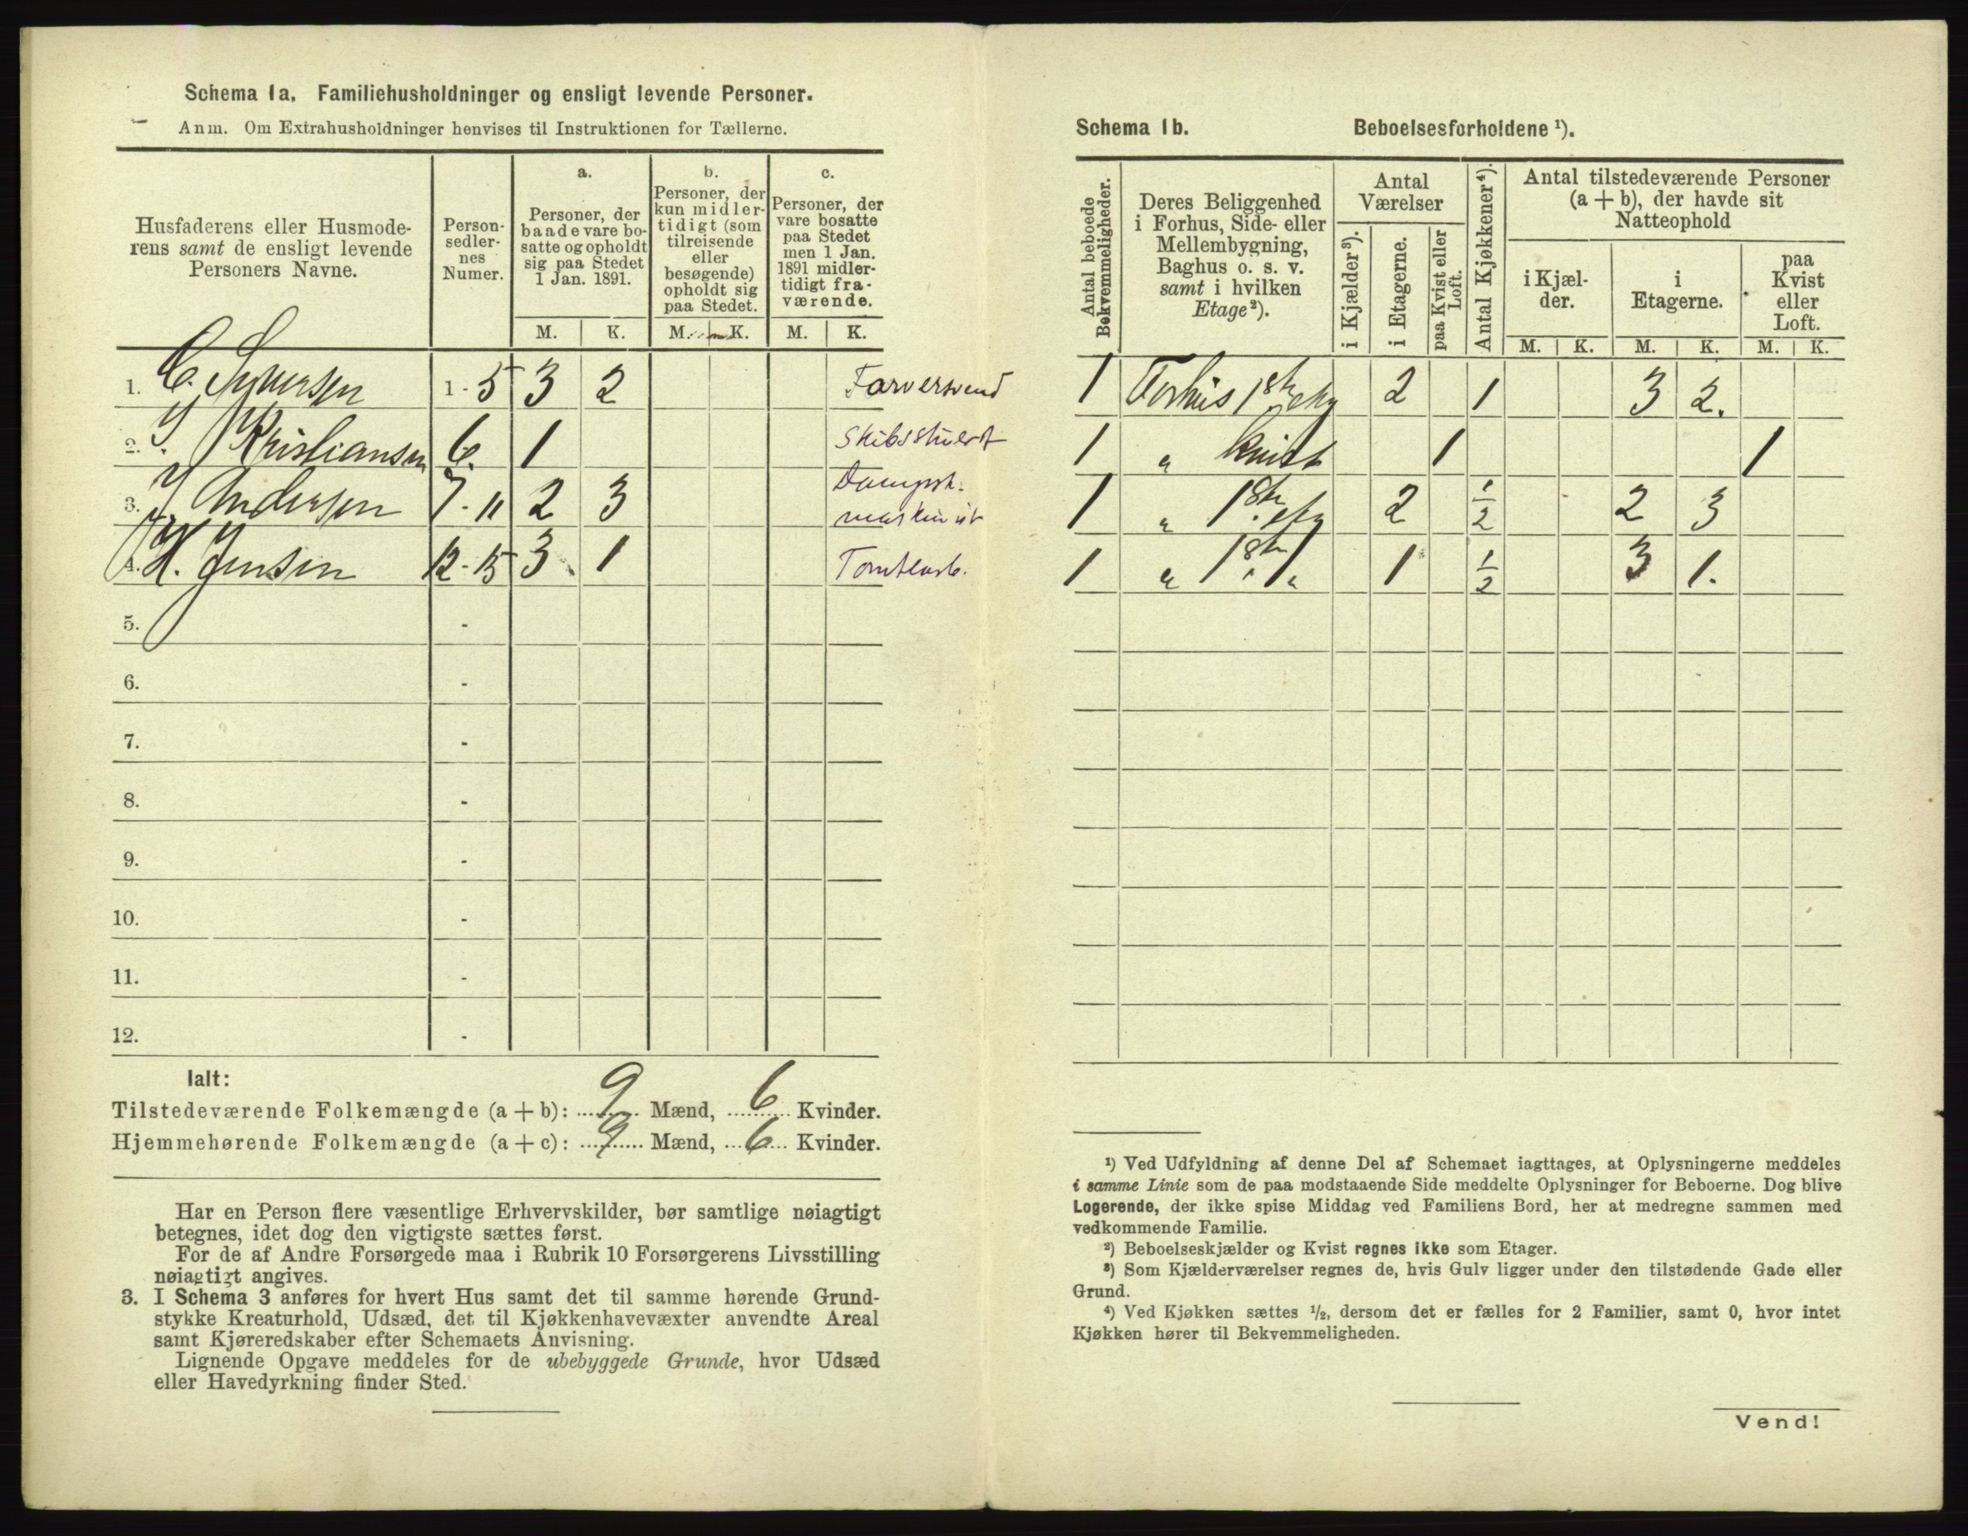 Schema 1a. Familiehusholdninger og ensligt levende Personer.
Anm. Om Extrahusholdninger henvises til Instruktionen for Tællerne.
Husfaderens eller Husmode-
rens samt de ensligt levende
Personers Navne.
Person-
sedler-
nes
Numer.
a.
Personer, der
baade vare bo-
satte og opholdt
sig paa Stedet
1 Jan. 1891.
b.
Personer, der
kun midler-
tidigt (som
tilreisende
eller
besøgende)
opholdt sig
paa Stedet.
c.
Personer, der
vare bosatte
paa Stedet
men 1 Jan.
1891 midler-
tidigt fra-
værende.
M. K. M. K. M. K.
1. C. Syversen 1-5 3 2 Farversvend
2. Kristiansen 6. 1 Skibsstuert
3. Andersen 7-11 2 3 Dampsk.
maskinist
4. H. Jensen 12-15 3 1 Tomtearb.
5. -
6. -
7. -
8. -
9. -
10. -
11. -
12. -
Ialt:
Tilstedeværende Folkemængde (a + b): 9 Mænd, 6 Kvinder.
Hjemmehørende Folkemængde (a + c): 9 Mænd, 6 Kvinder.
Har en Person flere væsentlige Erhvervskilder, bør samtlige nøiagtigt
betegnes, idet dog den vigtigste sættes først.
For de af Andre Forsørgede maa i Rubrik 10 Forsørgerens Livsstilling
nøiagtigt angives.
3. I Schema 3 anføres for hvert Hus samt det til samme hørende Grund-
stykke Kreaturhold, Udsæd, det til Kjøkkenhavevæxter anvendte Areal
samt Kjøreredskaber efter Schemaets Anvisning.
Lignende Opgave meddeles for de ubebyggede Grunde, hvor Udsæd
eller Havedyrkning finder Sted.
Schema 1b. Beboelsesforholdene ¹).
Antal beboede
Bekvemmeligheder.
Deres Beliggenhed
i Forhus, Side- eller
Mellembygning,
Baghus o. s. v.
samt i hvilken
Etage²).
Antal
Værelser
i Kjælder³).
i Etagerne.
paa Kvist eller
Loft.
Antal Kjøkkener⁴).
Antal tilstedeværende Personer
(a + b), der havde sit
Natteophold
i Kjæl-
der.
i
Etagerne.
paa
Kvist
eller
Loft.
M. K. M. K. M. K.
1 Forhus 1ste 2 1 3 2.
1 " kvist 1 1
1 " 1ste 2 ½ 2 3
1 " 1ste " 1 ½ 3 1.
¹) Ved Udfyldning af denne Del af Schemaet iagttages, at Oplysningerne meddeles
i samme Linie som de paa modstaaende Side meddelte Oplysninger for Beboerne. Dog blive
Logerende, der ikke spise Middag ved Familiens Bord, her at medregne sammen med
vedkommende Familie.
²) Beboelseskjælder og Kvist regnes ikke som Etager.
³) Som Kjælderværelser regnes de, hvis Gulv ligger under den tilstødende Gade eller
Grund.
⁴) Ved Kjøkken sættes ½, dersom det er fælles for 2 Familier, samt 0, hvor intet
Kjøkken hører til Bekvemmeligheden.
Vend!